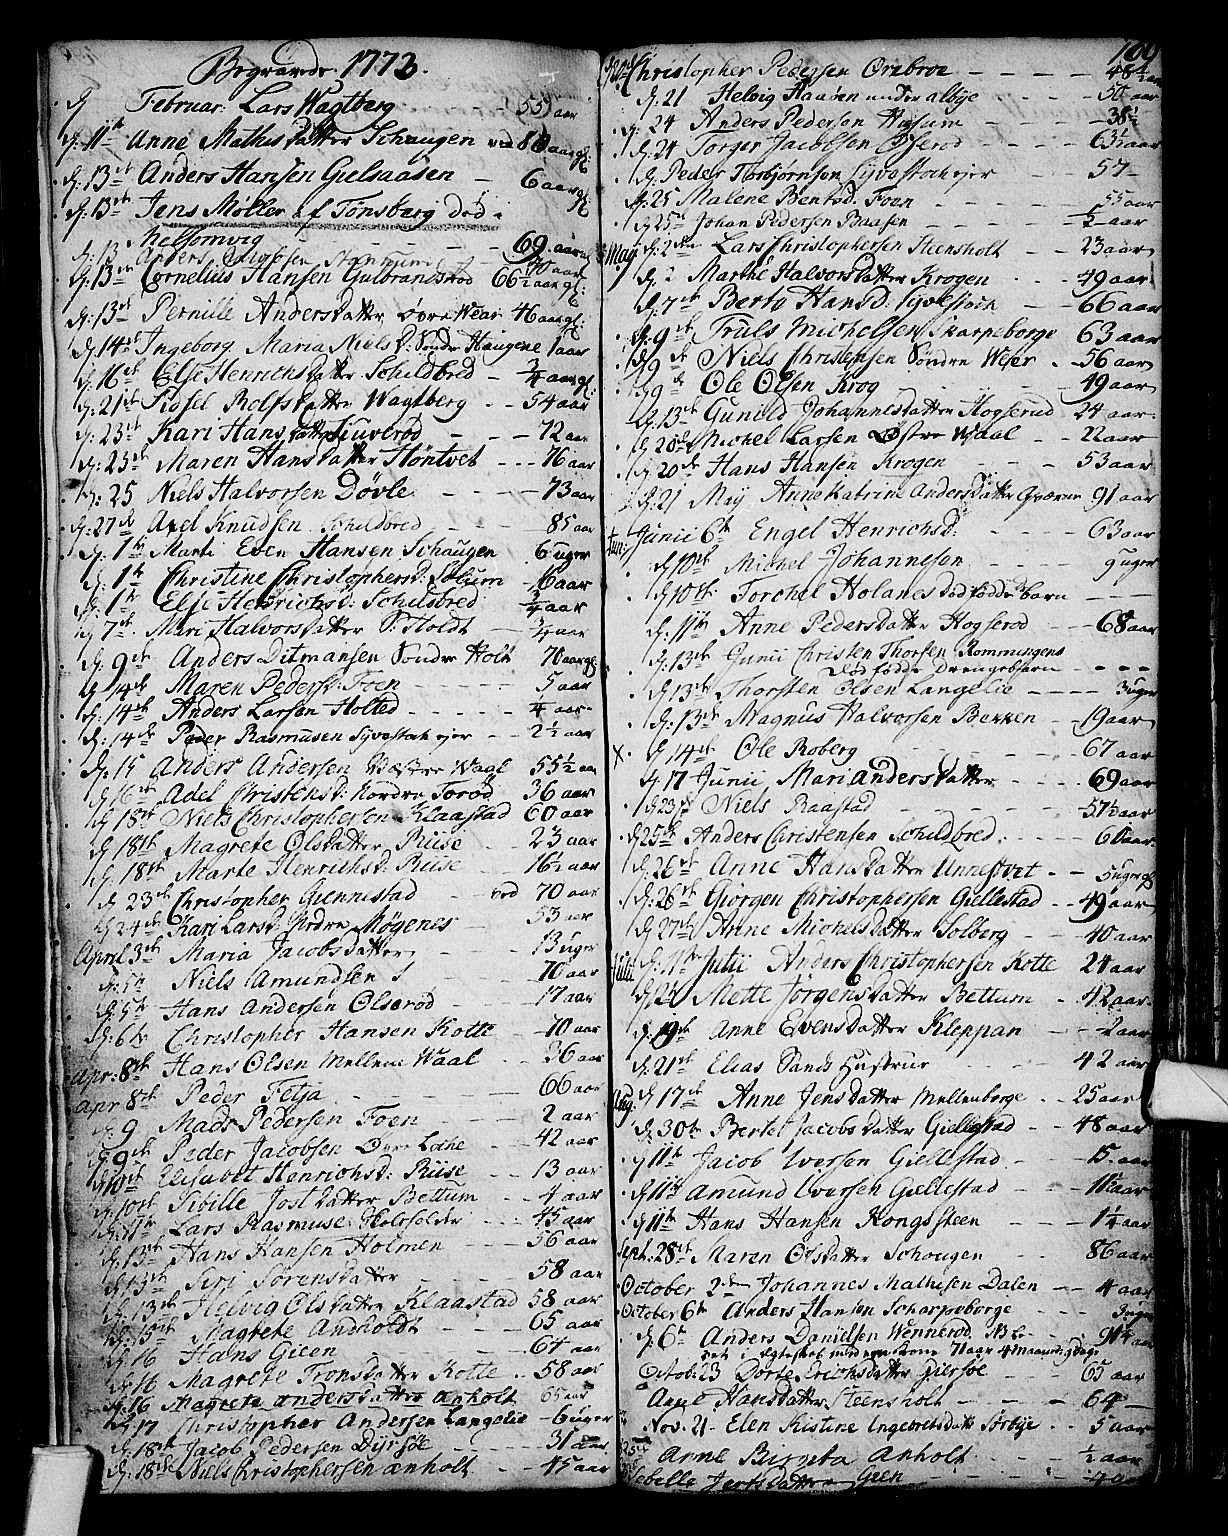 Begravede 1773.
Februar. Lars Wagtberg - - - 55 aar
d: 11te Anne Mathisdatter Schaugen ved 80 aar gl:
d: 13de Anders Hansen Gielsaasen - - 6 aar gl:
d: 13de Jens Møller af Tønsberg død i
Melsomvig - - - 69 aar
d: 13 Anders
d: 13de Cornelius Hansen Gulbrandsrød 66½ aar gl:
d: 13de Pernille Andersdatter Øvre Wear 46 aar gl:
d: 14de Ingeborg Maria Niels D: Søndre Haugene 1 aar
d: 16de Else Henrichsdatter Schildbred - ¾ aar gl:
d: 21de Sidsel Rolfsdatter Wagtberg - - 54 aar
d: 23de Kari Hansdatter - - - 72 aar
d: 23de Maren Hansdatter Høntvet - - - 76 aar
d: 25 Niels Halvorsen Døvle - - - 73 aar
d: 27de Axel Knudsen Schildbred - - 85 aar
d: 1te Marti Even Hansen Schaugen 6 uger
d: 1te Christine Christophersd: Solum - 6 aar
d: 1te Else Henrichsd: Schildbred - ¾ aar
d 7de Mari Halvorsdatter S: Holdt - ¼ aar
d: 9de Anders Ditmansen Søndre Holt 70 aar gl
d 14de Maren Pedersd: Foen - - - 5 aar
d: 14de Anders Larsen Holted - - - 4 aar
d: 14de Peder Rasmusen Syvestochejer - - 2½ aar
d: 15 Anders Andersen Wæstre Waal 55½ aar
d 16de Adel Christensd: Nordre Torød 36 aar
d 18de Niels Christophersen Klaastad 60 aar
d 18de Magrete Olsdatter Riise - - 23 aar
d: 18de Marte Henrichsd: Riise - - 16½ aar
d 23de Christopher Giennestad - - ved 70 aar
d 24de Kari Larsd: Nordre Møgenes - 53 aar
April 3de Maria Jacobsdatter - - 13 uger
d: 5te Niels Amundsen - - 70 aar
d 5te Hans Andersen Olserød - - - 17 aar
d: 6te Christopher Hansen Kotte - 70 aar
Apr: 8de Hans Olsen Mellem Waal - - 36 aar
Apr 8de Peder Fetja - - - 66 aar
d: 9 Mads Pedersen Foen - - - 2 aar
d: 9de Peder Jacobsen Øvre Lohe - - 42 aar
d 10de Elisabet Henrichsd: Riise - - 13 aar
d: 10de Siville Jostdatter Bettum - - 4 aar
d: 11te Lars Rasmuse - - - 45 aar
d: 13de Hans Hansen Holmen - - - 56 aar
d 13de Siri Sørensdatter - - - 58 aar
d: 13de Helvig Olsdatter Klaastad 58 aar
d: 15de Magrete Andholdt - - - 65 aar
d: 16 Hans Gieen - - - 64 -
d: 16 Magrete Tronsdatter Kotte - - 58 aar
d: 16 Magrete Andersdatter Anholt - 65 aar
d: 17 Christopher Andersen Langelie - 6 uger
d: 18de Jacob Pedersen Dyrsøe - - 31 aar
d: 18de Niels Christophersen Anholt - - 45 aar
Christopher Pedersen Orebroe - - - 48½ aar
d: 21 Helvig Hansen under albye - - - 50 aar
d: 24 Anders Pedersen Husum - - - 38½
d: 24 Torger Jacobsen - - - 63½ aar
d: Peder Torbjørnsen Syvestochejer - - 57 -
d: 25 Malene Bentsd: Foen - - - 55 aar
d 25de Johan Pedersen Baasen - - - ½ aar
May d: 2den Lars Christophersen Steensholt - 23 aar
d: 2 Marthe Halvorsdatter Krogen - - 49 aar
d: 7de Berto Hansd: Syvestoch - - 66 aar
d: 9de Truls Michelsen Skarpeborge 63 aar
d 9de Niels Christensen Søndre Weer - 56 aar
d 9de Ole Olsen Krog - - - 49 aar
d: 13de Gunild Johannesdatter Hogserud - 24 aar
d: 20de Michel Larsen Østre Waal - - 22 aar
d: 20de Hans Hansen Krogen - - 53 aar
d: 21 May Anne Katrine Andersdatter Qværne 91 aar
Juni Junii 6te Engel Henrichsd: - - 63 aar
d 10de Michel Johannesen - - - 9 uger
d 10de Torchel Holanes dødfødde barn - - -
d: 11te Anne Pedersdatter Hogserød - - 68 aar
d: 13de Junii Christen Thorsen Rommingens
død fødde Drengebarn - - -
d: 13de Thorsten Olsen Langelie - - - 3 uger
d: 13de Magnus Halvorsen Bekken - - 19 aar
x d 14de Ole Roberg - - - 67 aar
d 17 Junii Mari Andersdatter - - - 69 aar
d 23de Niels Raastad - - - 57½ aar
d 25de Anders Christensen Schildbred - - 60 aar
d: 26de Anne Hansdatter Unneßvet - - 5 uger gl
d: 26de Giorgen Christophersen Giellestad - - 49 aar
d 27de Anne Michelsdatter Solberg - - 40 aar
Julii d: 11te Julii Anders Christophersen Kotte 24 aar
d 12te Mette Jørgensdatter Bettum - 42 aar
d: 19de Anne Evensdatter Kleppan - - 2 aar
d: 21de Elias Sands Hustrue - - 42 aar
Aug: d 17de Anne Jensdatter Mellenborge - - 25 aar
d: 30te Bertel Jacobsdatter Giellestad - - 48 aar
d 11te Jacob Iversen Giellestad - - 15 aar
d 11te Amund Iversen Giellestad - - 11½ aar
d 11te Hans Hansen Kongssteen - - 1¼ aar
Sept: 28de Maren Olsdatter Schougen - - 86 aar
October 2den Johannes Mathisen Dalen - - 4 aar
October 6te Anders Hansen Scharpeborge - - 3 uger
d. 6te Anders Danielsen Wennerød NB - - 91¼ aar
vet i ægteskab med een Kone 71 aar 4 maaned 9 dage
Octob: 23 Dorte Erichsdatter Diersøe - - 65 aar
Anne Hansdatter Steensholt - - 64 -
Nov. 21 Elen Kistine Ingebretsdatt: Sørbye - - 5 aar
Anne Birgeta Anholt - - - ½ aar
Sebelle Jertsdatter Gieen - - - 40